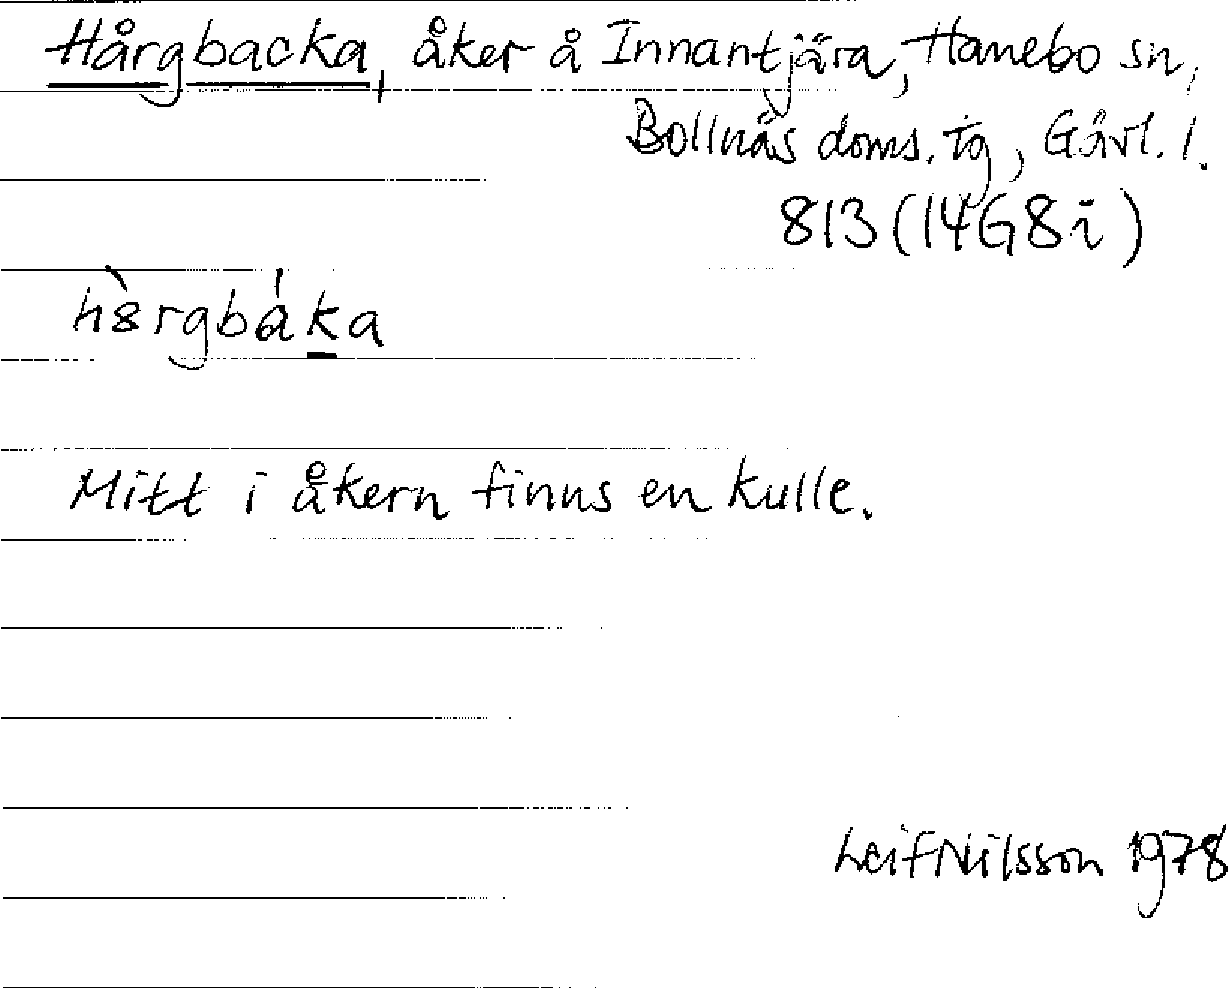 Hårgbacka, åker å Innantjära, Hanebo sn,
Bollnäs doms. tg, Gävl. l.
813 (14G8i)
Mitt i åkern finns en kulle.
Leif Nilsson 1978